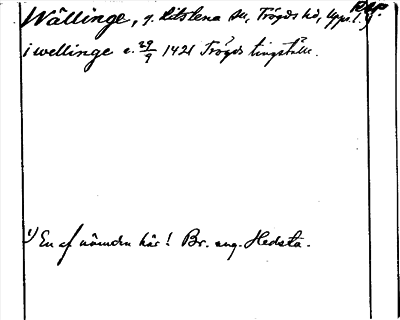 Wällinge, g. Litslena sn, Trögds hd, Upps. l. Rep.
i wellinge c. 29/9 1421 Trögds tingställe.
1) En af nämnden här! Br. ang. Hedsta.